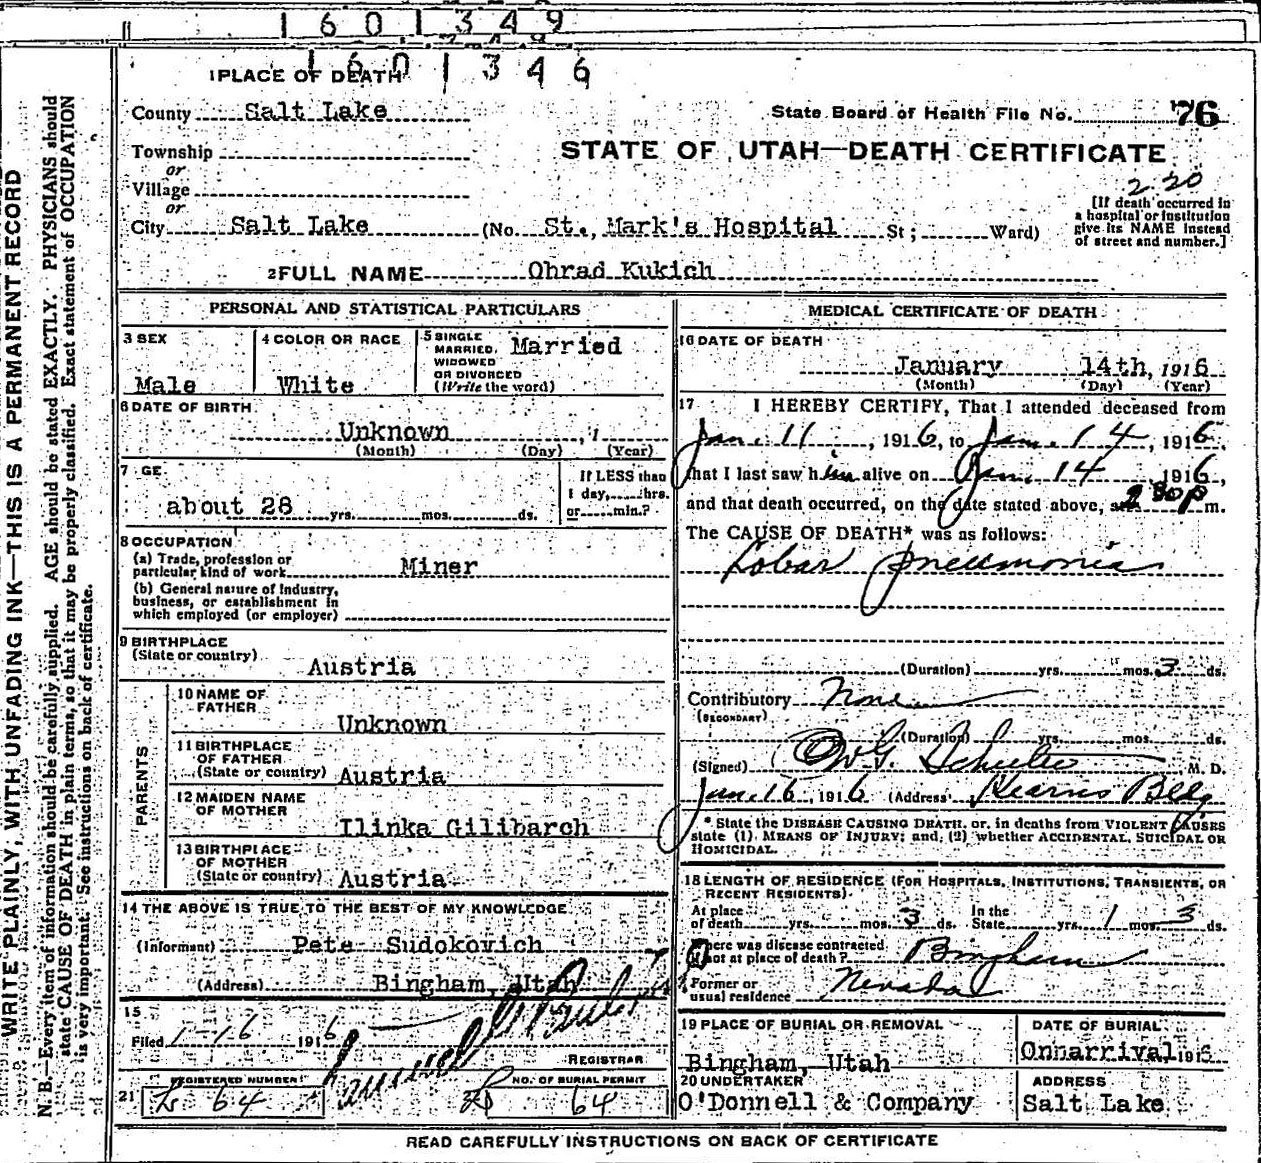 1601349
1601346
1 PLACE OF DEATH
County Salt Lake
State Board of Health File No. 76
Township
or
Village
or
City Salt Lake (No. St., Mark's Hospital St; Ward)
STATE OF UTAH—DEATH CERTIFICATE
2 20
[If death occurred in
a hospital or institution
give its NAME instead
of street and number.]
2 FULL NAME Obrad Kukich
PERSONAL AND STATISTICAL PARTICULARS
3 SEX
Male
4 COLOR OR RACE
White
5 SINGLE
MARRIED,
WIDOWED
OR DIVORCED
(Write the word)
Married
6 DATE OF BIRTH
Unknown , 1
(Month) (Day) (Year)
7 GE
about 28 yrs. mos. ds.
If LESS than
1 day, hrs.
or min.?
8 OCCUPATION
(a) Trade, profession or
particular kind of work Miner
(b) General nature of industry,
business, or establishment in
which employed (or employer)
9 BIRTHPLACE
(State or country)
Austria
PARENTS
10 NAME OF
FATHER
Unknown
11 BIRTHPLACE
OF FATHER
(State or country) Austria
12 MAIDEN NAME
OF MOTHER
Ilinka Gilibarch
13 BIRTHPLACE
OF MOTHER
(State or country) Austria
14 THE ABOVE IS TRUE TO THE BEST OF MY KNOWLEDGE
(Informant) Pete Sudokovich
(Address) Bingham, Utah
15
Filed 1-16 1916
REGISTRAR
21
REGISTERED NUMBER
64
NO. OF BURIAL PERMIT
64
MEDICAL CERTIFICATE OF DEATH
16 DATE OF DEATH
January 14th, 1916
(Month) (Day) (Year)
17 I HEREBY CERTIFY, That I attended deceased from
Jan. 11, 1916, to Jan. 14, 1916,
that I last saw him alive on Jan. 14 1916,
and that death occurred, on the date stated above, at m.
The CAUSE OF DEATH* was as follows:
Lobar pneumonia
(Duration) yrs. mos. 3 ds.
Contributory None
(SECONDARY)
(Duration) yrs. mos. ds.
(Signed) M. D.
Jan. 16, 1916 (Address) Kearns Bldg
* State the DISEASE CAUSING DEATH, or, in deaths from VIOLENT CAUSES
state (1) MEANS OF INJURY; and, (2) whether ACCIDENTAL, SUICIDAL OR
HOMICIDAL.
18 LENGTH OF RESIDENCE (FOR HOSPITALS, INSTITUTIONS, TRANSIENTS, OR
RECENT RESIDENTS).
At place
of death yrs. mos. 3 ds.
In the
State yrs. 1 3 ds.
Where was disease contracted
if not at place of death? Bingham
Former or
usual residence Nevada
19 PLACE OF BURIAL OR REMOVAL
Bingham, Utah
DATE OF BURIAL
Onnarrival, 1916
20 UNDERTAKER
O'Donnell & Company
ADDRESS
Salt Lake
READ CAREFULLY INSTRUCTIONS ON BACK OF CERTIFICATE
WRITE PLAINLY, WITH UNFADING INK—THIS IS A PERMANENT RECORD
N. B.—Every item of information should be carefully supplied. AGE should be stated EXACTLY. PHYSICIANS should
state CAUSE OF DEATH in plain terms, so that it may be properly classified. Exact statement of OCCUPATION
is very important. See instructions on back of certificate.